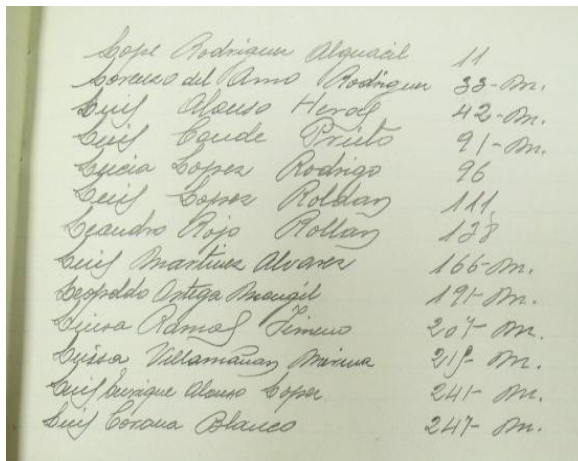 Lope Rodriguez Alguacil 11
Lorenzo del Amo Rodriguez 33-m.
Luis Alonso Heras 42-m.
Luis Conde Prieto 91-m.
Lucia Lopez Rodrigo 96
Luis Lopez Roldan 111
Leandro Rojo Rollan 138
Luis Martinez Alvarez 166-m.
Leopoldo Ortega Monguil 191-m.
Luisa Ramos Jimeno 207-m.
Luisa Villamañan 219-m.
Luis Enrique Alonso Lopez 241-m.
Luis Corona Blanco 247-m.